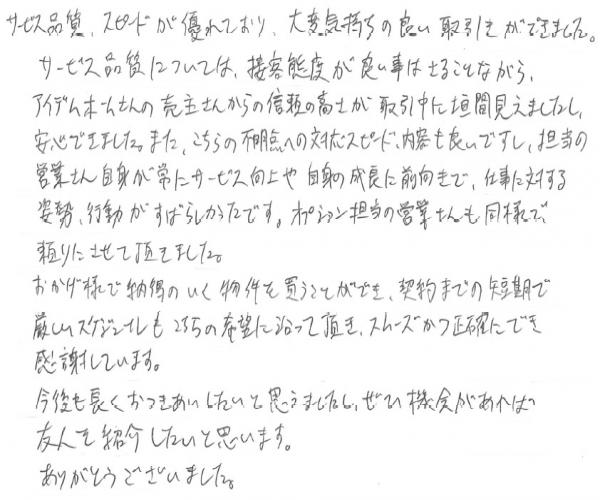 サービス品質、スピードが優れており、大変気持ちの良い取引きができました。
サービス品質については、接客態度が良い事はさることながら、
アイデムホームさんの売主さんからの信頼の高さが取引中に垣間見えましたし、
安心できました。また、こちらの不明点への対応スピード、内容も良いですし、担当の
営業さん自身が常にサービス向上や自身の成長に前向きで、仕事に対する
姿勢、行動がすばらしかったです。オプション担当の営業さんも同様で、
頼りにさせて頂きました。
おかげ様で納得のいく物件を買うことができ、契約までの短期で
厳しいスケジュールもこちらの希望に沿って頂き、スムーズかつ正確にでき
感謝しています。
今後も長くおつきあいしたいと思えましたし、ぜひ機会があれば
友人を紹介したいと思います。
ありがとうございました。